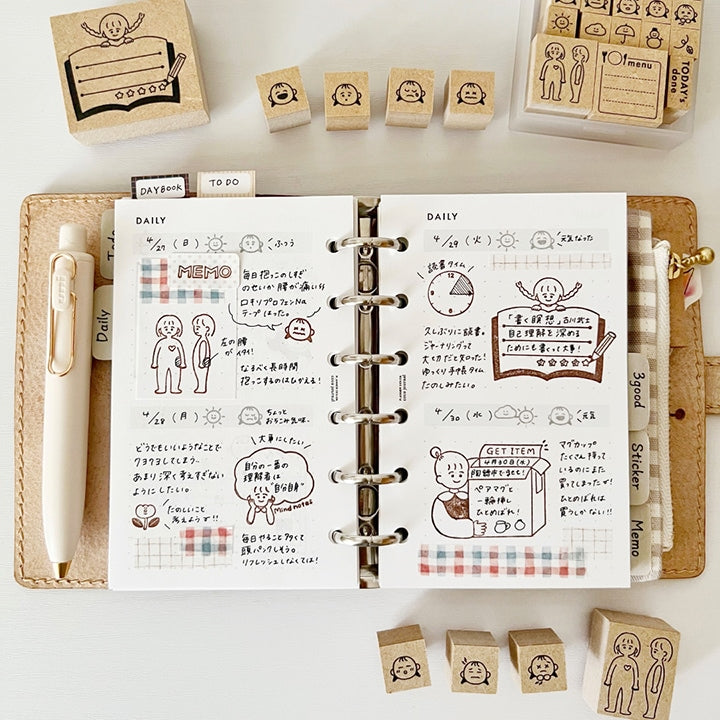 menu
TODAY's done
DAYBOOK
TO DO
Todo
Daily
DAILY
4/27 (日) ふつう
MEMO
毎日抱っこのしすぎ
のせいか腰が痛い
ロキソプロフェンNa
テープはった。
左の腰
がイタイ!
なるべく長時間
抱っこするのはひかえる!
4/28 (月) ちょっと
おちこみ気味..
どうでもいいようなことで
クヨクヨしてしまう..
あまり深く考えすぎない
ようにしたい。
たのしいこと
考えよう!!
大事にしたい
自分の一番の
理解者は
"自分自身"
Mind notes
毎日やること多くて
頭パンクしそう。
リフレッシュしなくては!
DAILY
4/29 (火) 元気なった
読書タイム
12
3
6
9
久しぶりに読書。
ジャーナリングって
大切だと知った!
ゆっくり手帳タイム
たのしみたい。
「書く瞑想」古川武士
自己理解を深める
ためにも書くって大事!
4/30 (水) 元気
GET ITEM
4月30日(水)
陶器市でGET!
ペアマグと
一輪挿し
ひとめぼれ!
マグカップ
たくさん持って
いるのにまた
買ってしまったぞ!
ひとめぼれは
買うしかない!!
3good
Sticker
Memo